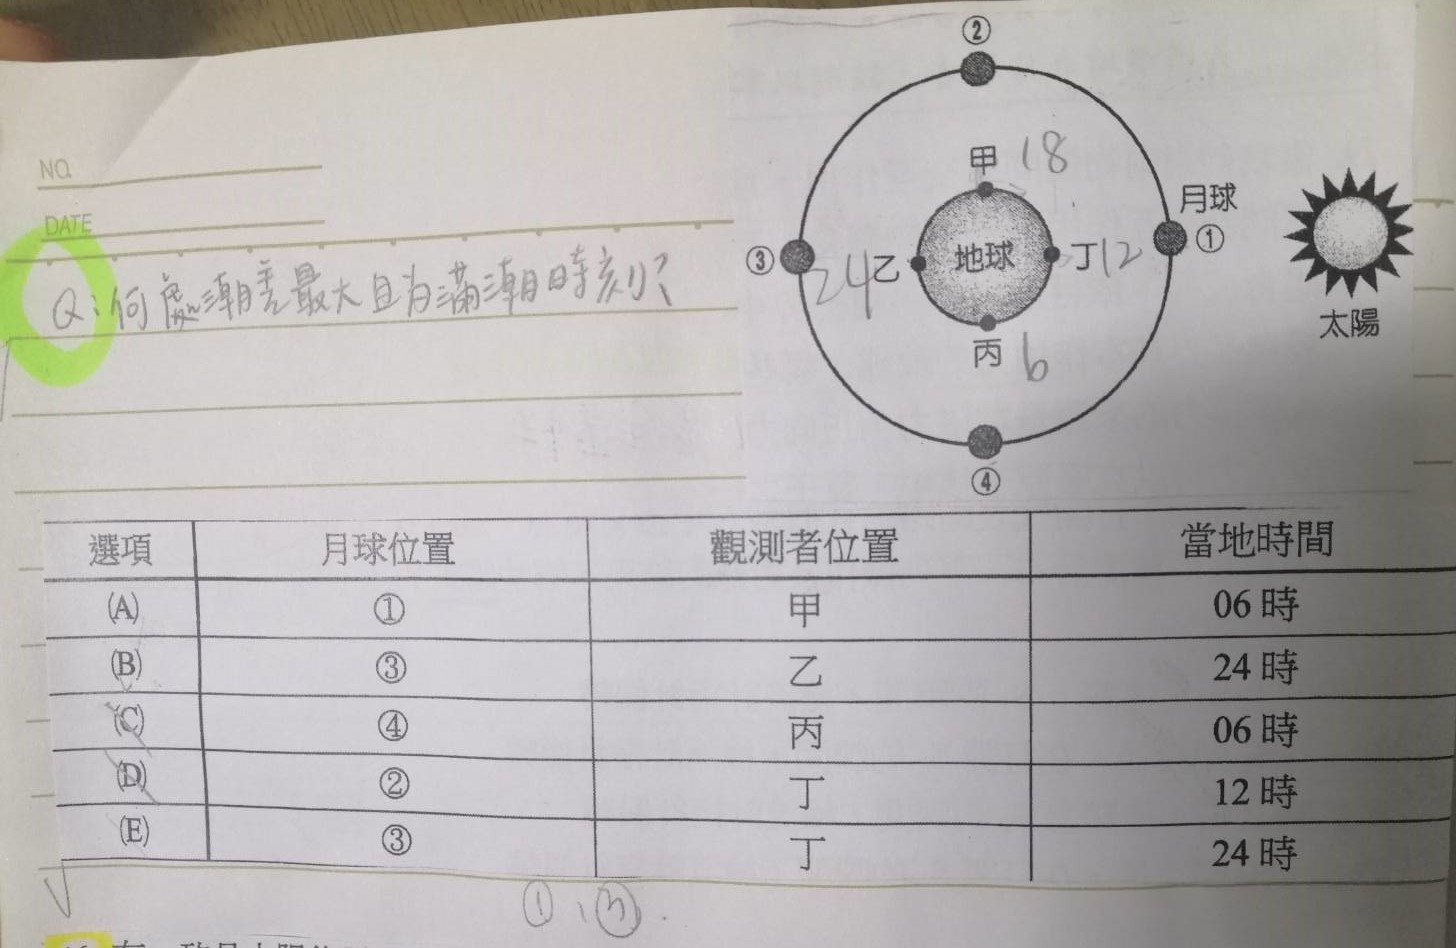 NO.
DATE
Q:何處潮差最大且為滿潮時刻?
②
甲 18
月球
①
③
24 乙
地球
丁 12
太陽
丙 6
④
選項 月球位置 觀測者位置 當地時間
(A) ① 甲 06 時
(B) ③ 乙 24 時
(C) ④ 丙 06 時
(D) ② 丁 12 時
(E) ③ 丁 24 時
①、③.